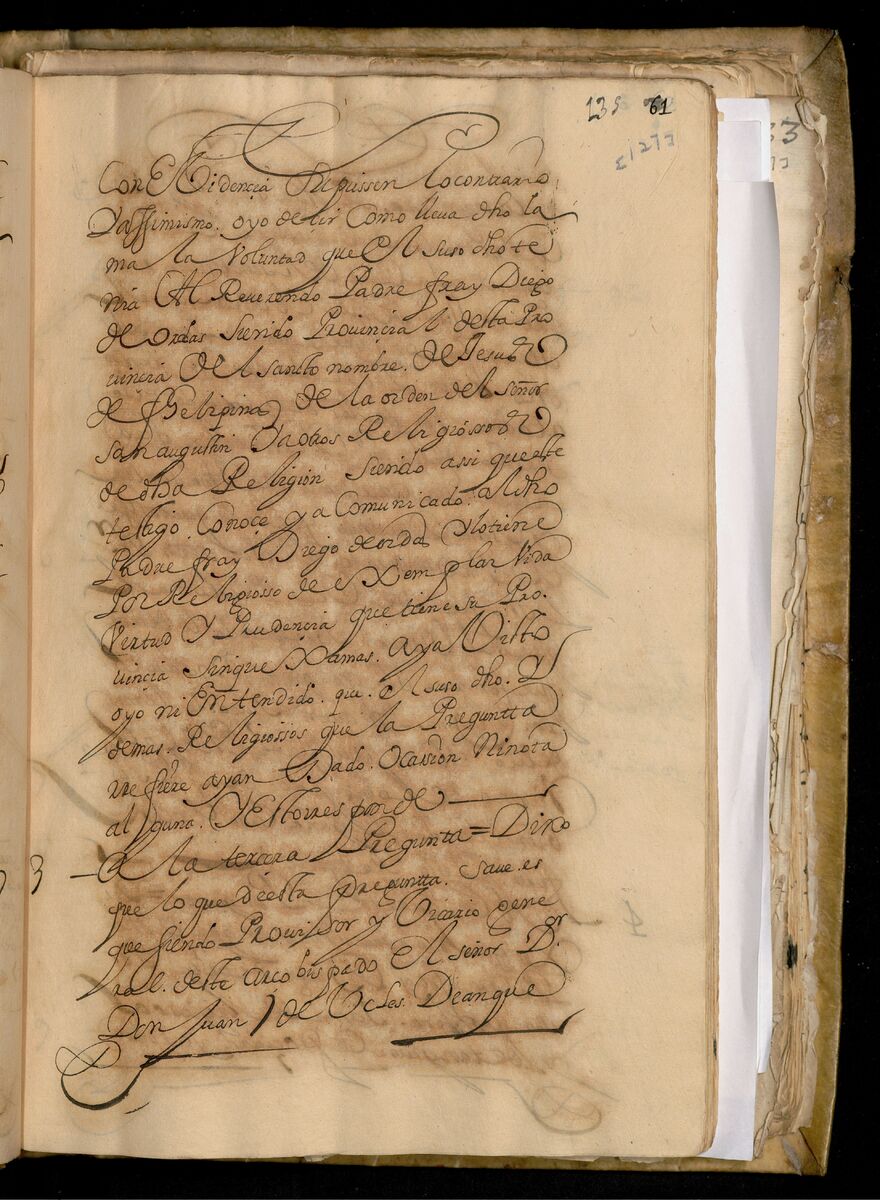 135 61
Con Evidencia Supiessen lo contrario
Yassimismo. oyo deSir Como lleva dho la
mala Voluntad que El suso dho te
nia Al Reverendo Padre fray Diego
de ordas Siendo Provincial desta Pro
vincia Del sancto nombre. de Jesus
de Phelipinas de la orden del señor
san augustin Yaotros Religiossos
de dha Religion siendo assi que este
testigo. Conoçe y a Comunicado. al dho
Padre fray Diego de ordas Y lo tiene
Por Religiosso de exemplar Vida
Virtud Y Prudencia que tiene su Pro
vincia sin que Xamas. aya Visto
oyo ni Entendido. que. el suso dho. Y
demas. Religiossos que la Preguntta
rrefiere ayan Dado. Ocassion Ni nota
alguna. Y Esto rresponde
3 A la tercera Pregunta = Dixo
que lo que de esta Preguntta. save es
que siendo Provissor y Vicario gene
ral. deste arçobispado El señor Dor
Don Juan de Ucles. Dean que